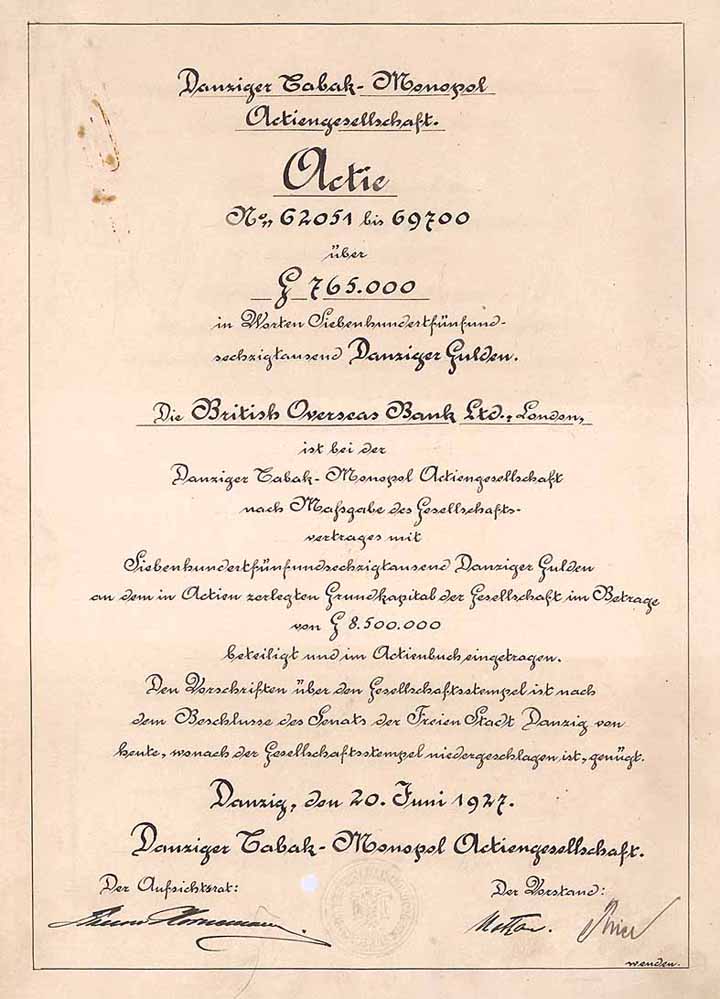 Danziger Tabak-Monopol
Actiengesellschaft.
Actie
No. 62051 bis 69700
über
G 765.000
in Worten Siebenhundertfünfund-
sechzigtausend Danziger Gulden.
Die British Overseas Bank Ltd., London,
ist bei der
Danziger Tabak-Monopol Actiengesellschaft
nach Maßgabe des Gesellschafts-
vertrages mit
Siebenhundertfünfundsechzigtausend Danziger Gulden
an dem in Actien zerlegten Grundkapital der Gesellschaft im Betrage
von G 8.500.000
beteiligt und im Actienbuch eingetragen.
Den Vorschriften über den Gesellschaftsstempel ist nach
dem Beschlusse des Senats der Freien Stadt Danzig von
heute, wonach der Gesellschaftsstempel niedergeschlagen ist, genügt.
Danzig, den 20. Juni 1927.
Danziger Tabak-Monopol Actiengesellschaft.
Der Aufsichtsrat: Der Vorstand:
wenden.